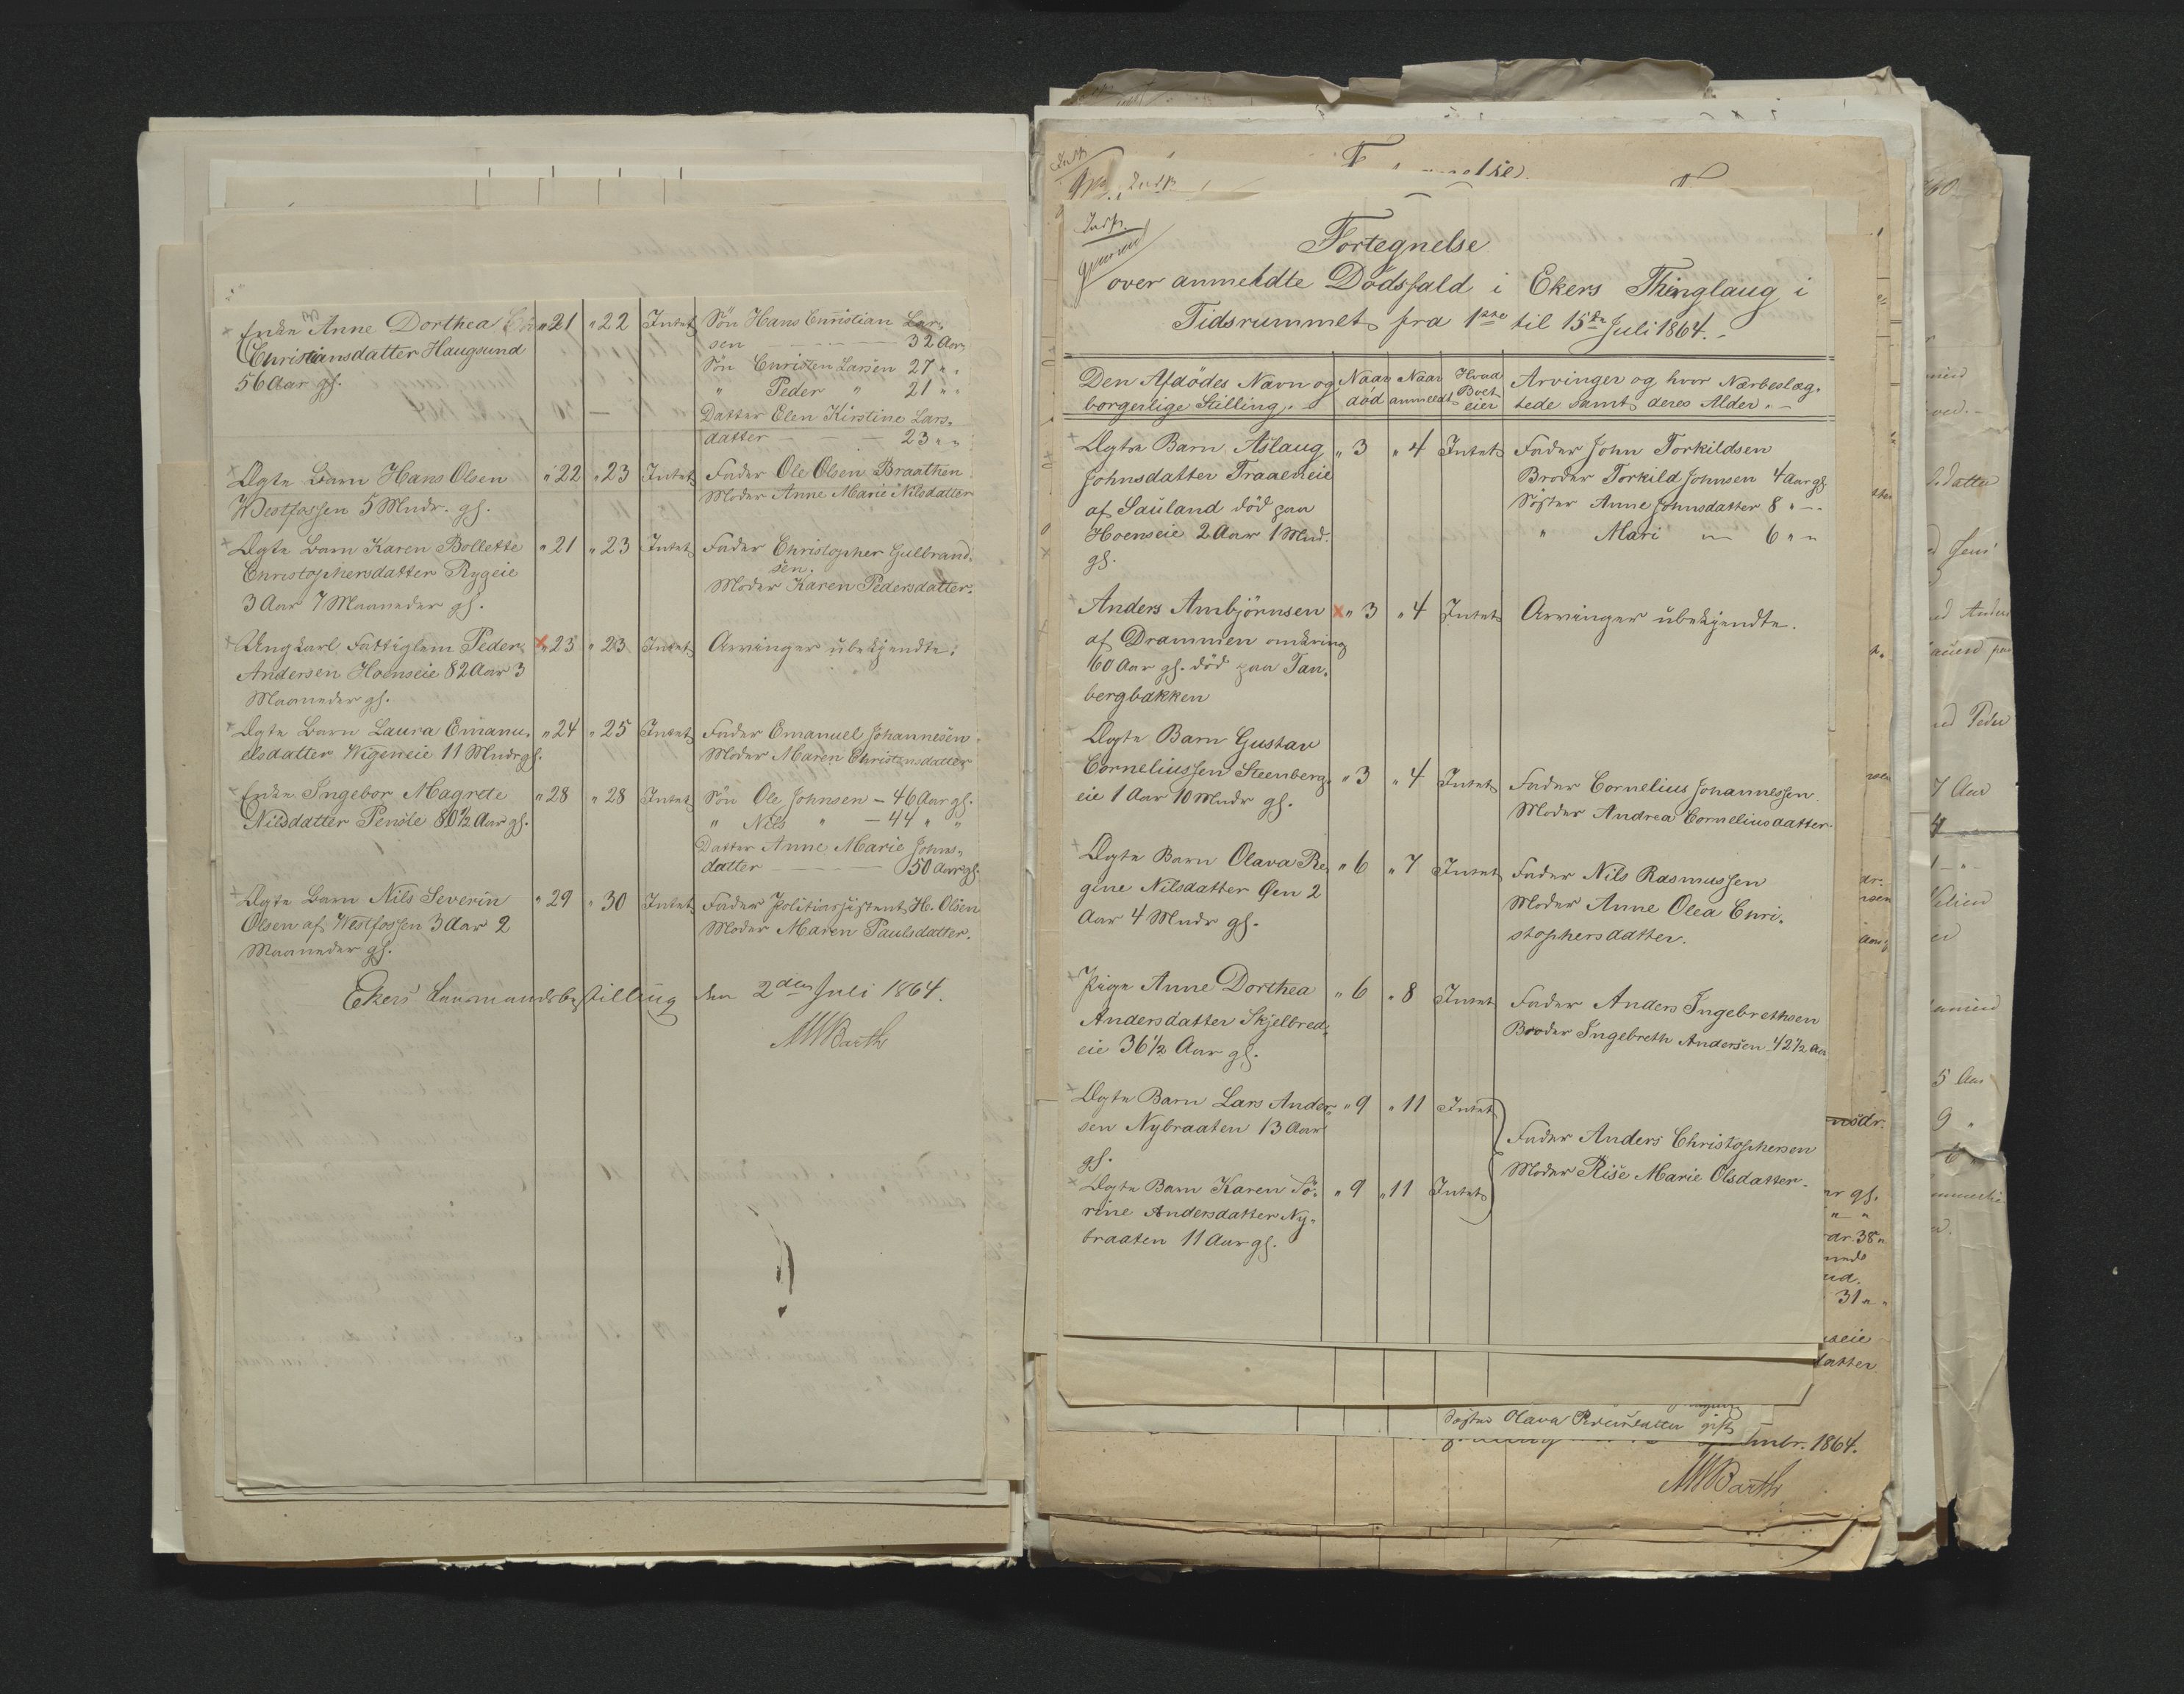 Enke Anne Dorthea "21 "22 Intet Søn Hans Christian Lar-
Christiansdatter Haugsund sen 32 Aar
56 Aar gl. Søn Christen Larsen 27 " "
" Peder " 21 " "
Datter Elen Kirstine Lars-
datter 23 " "
Ægte Barn Hans Olsen "22 "23 Intet Fader Ole Olsen Braathen
Westfossen 5 Mndr. gl. Moder Anne Marie Nilsdatter
Ægte Barn Karen Bollette "21 "23 Intet Fader Christopher Gulbrand-
Christophersdatter Rygeie sen.
3 Aar 7 Maaneder gl. Moder Karen Pedersdatter.
Ungkarl, Fattiglem Peder "23 "23 Intet Arvinger ubekjendte.
Andersen Hoenseie 82 Aar 3
Maaneder gl.
Ægte Barn Laura Emanu- "24 "25 Intet Fader Emanuel Johannesen
elsdatter Wigerseie 11 Mndr gl. Moder Maren Christensdatter
Enke Ingebor Magrete "28 "28 Intet Søn Ole Johnsen – 46 Aar gl.
Nilsdatter 80½ Aar gl. " Nils " – 44 " "
Datter Anne Marie Johns-
datter 50 Aar gl.
Ægte Barn Nils Severin "29 "30 Intet Fader Politiassistent H. Olsen
Olsen af Westfossen 3 Aar 2 Moder Maren Paulsdatter.
Maaneder gl.
Ekers Lensmandsbestilling den 2den Juli 1864.
MWBarth
Fortegnelse
over anmeldte Dödsfald i Ekers Thinglaug i
Tidsrummet fra 1ste til 15de Juli 1864.
Den Afdödes Navn og Naar Naar Hvad Arvinger og hvor Nærbeslæg-
borgerlige Stilling. död anmeldt Boet eier tede samt deres Alder.
Ægte Barn Aslaug "3 "4 Intet Fader John Torkildsen
Johnsdatter Traaeneie Broder Torkild Johnsen 4 Aar gl.
af Sauland död paa Søster Anne Johnsdatter 8 " –
Hoenseie 2 Aar 1 Mnd. " Mari — 6 " "
gl.
Anders Ambjörnsen "3 "4 Intet Arvinger ubekjendte.
af Drammen omkring
60 Aar gl. död paa Tan-
bergbakken
Ægte Barn Gustav
Corneliussen Steenberg- "3 "4 Intet Fader Cornelius Johannessen
eie 1 Aar 10 Mndr gl. Moder Andrea Corneliusdatter.
Ægte Barn Olava Re- "6 "7 Intet Fader Nils Rasmussen
gine Nilsdatter Øen 2 Moder Anne Olea Chri-
Aar 4 Mndr gl. stophersdatter.
Pige Anne Dorthea "6 "8 Intet Fader Anders Ingebrethsen
Andersdatter Skjelbred- Broder Ingebreth Andersen 42½ Aar
eie 36½ Aar gl.
Ægte Barn Lars Ander- "9 "11 Intet
sen Nybraaten 13 Aar Fader Anders Christophersen
gl. Moder Rise Marie Olsdatter.
Ægte Barn Karen Sö- "9 "11 Intet
rine Andersdatter Ny-
braaten 11 Aar gl.
Søster Olava
1864.
MWBarth